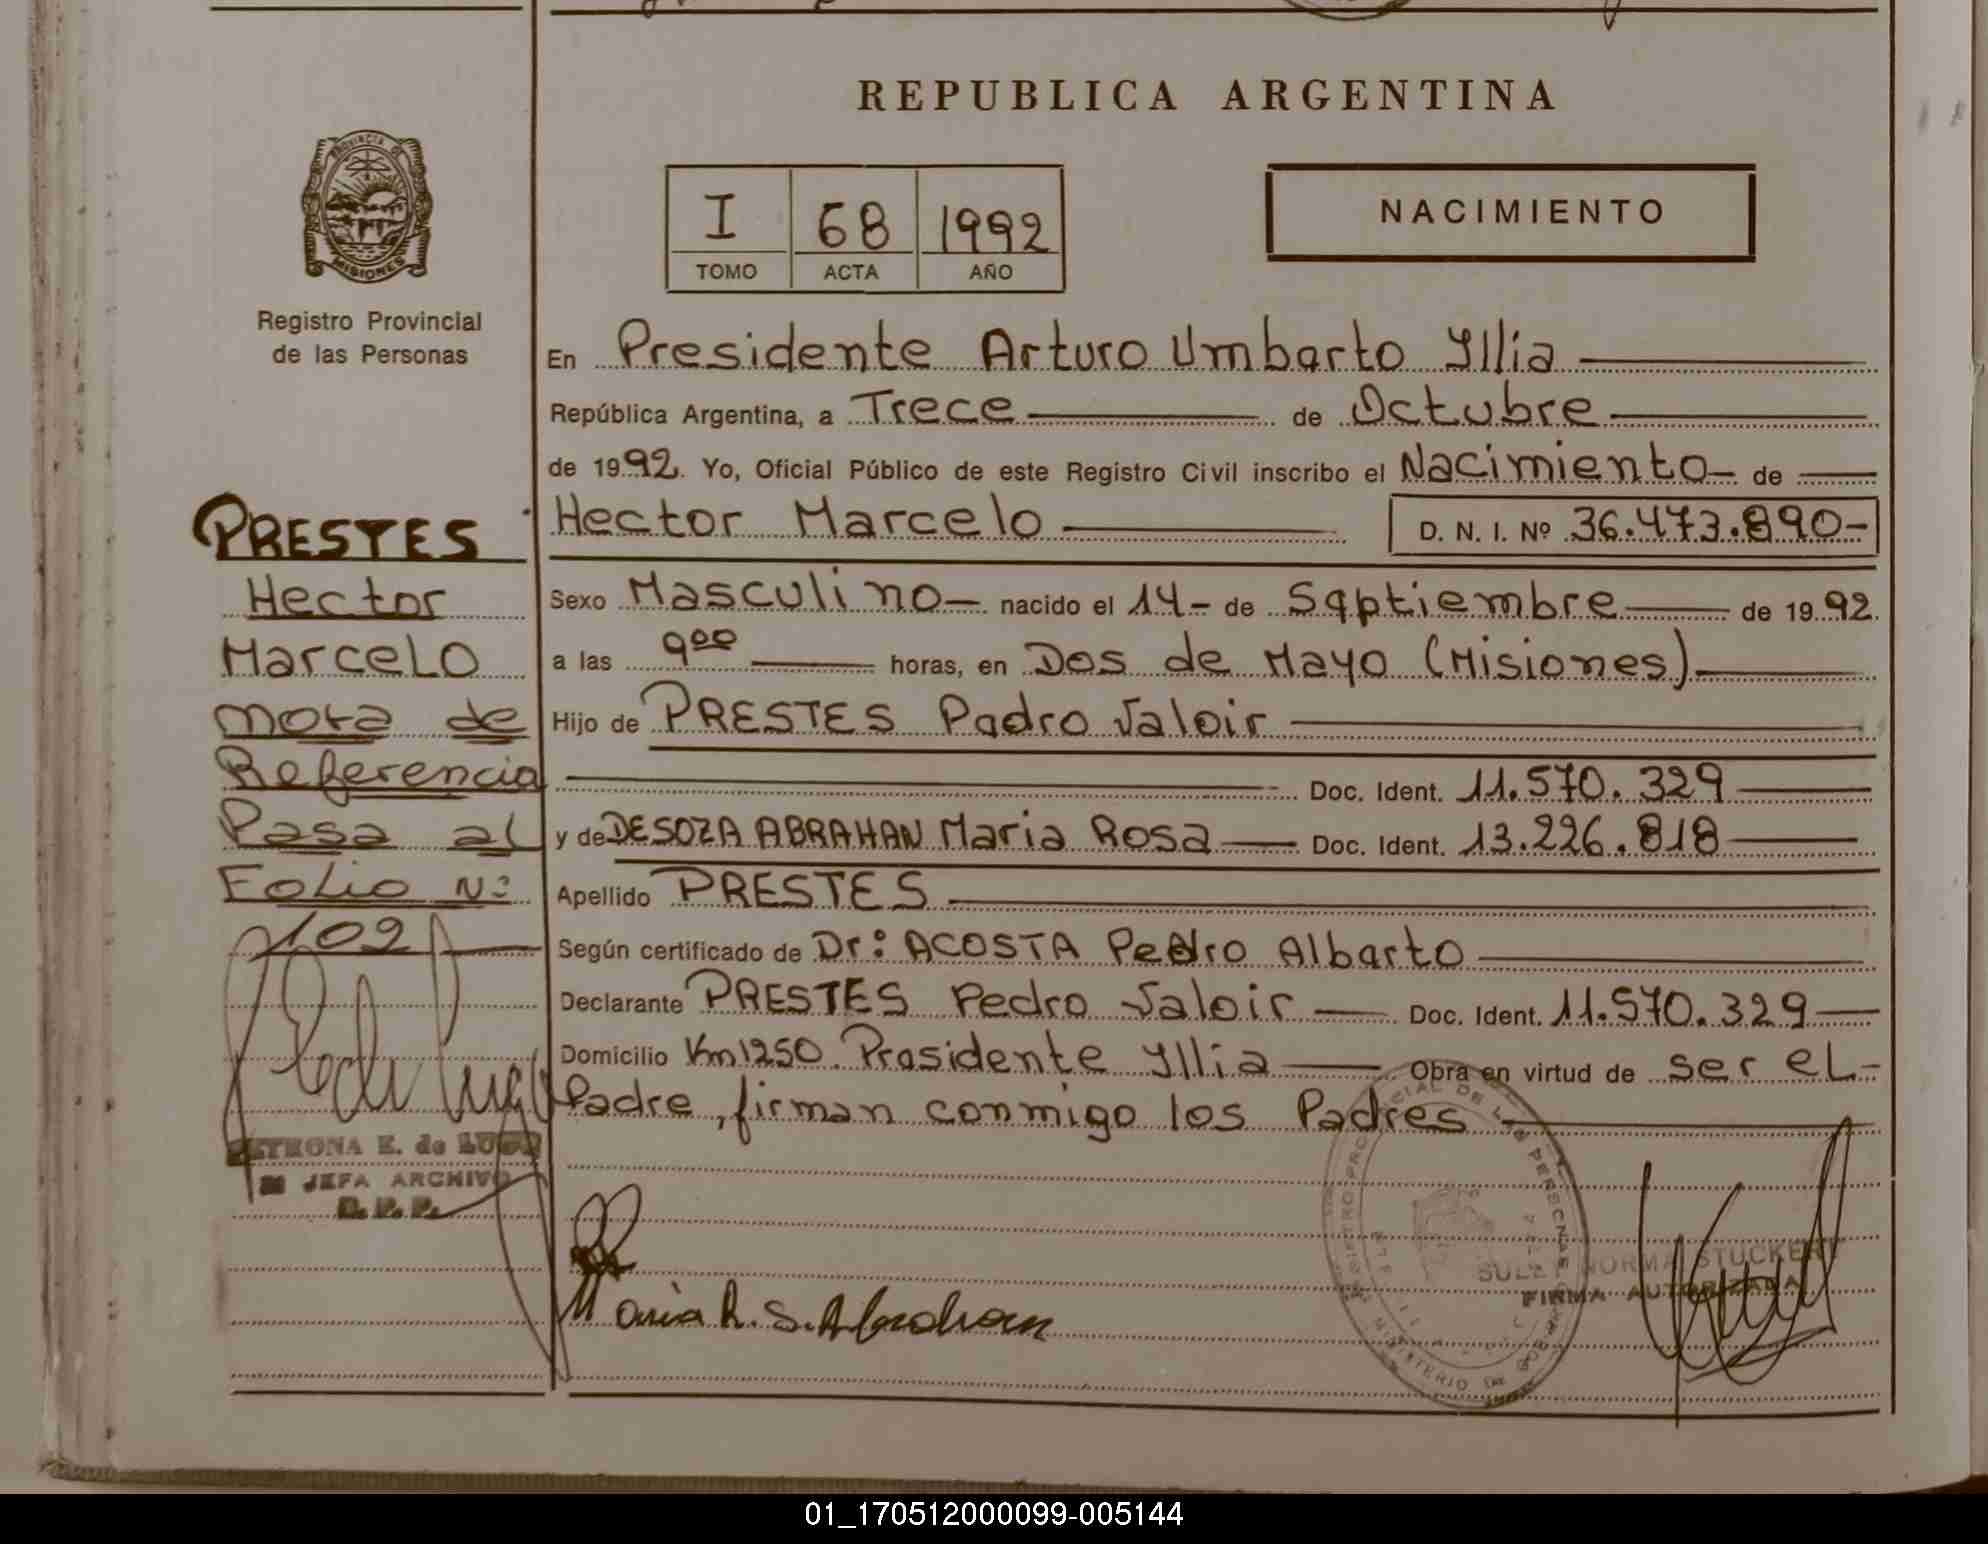 REPUBLICA ARGENTINA
PROVINCIA DE
MISIONES
Registro Provincial
de las Personas
I 68 1992
TOMO ACTA AÑO
NACIMIENTO
En Presidente Arturo Umbarto Illia
República Argentina, a Trece de Octubre
de 1992. Yo, Oficial Público de este Registro Civil inscribo el Nacimiento de
Hector Marcelo D. N. I. Nº 36.473.890-
Sexo Masculino nacido el 14- de Sqptiembre de 1992
a las 9ºº horas, en Dos de Mayo (Misiones)
Hijo de PRESTES Padro Valoir
Doc. Ident. 11.570.329
y de DESOZA ABRAHAN Maria Rosa Doc. Ident. 13.226.818
Apellido PRESTES
Según certificado de Dr: ACOSTA Pedro Albarto
Declarante PRESTES Pedro Valoir Doc. Ident. 11.570.329
Domicilio Km 1250. Prasidente Illia Obra en virtud de ser eL-
Padre, firman conmigo los Padres
PRESTES
Hector
MarceLO
Mota de
Referencia
Pasa al
FoLio Nº
109
PETRONA E. de LUGO
JEFA ARCHIVO
D. P. P.
Maria R. S. Abrahan
NORMA STUCKERT
FIRMA AUTORIZADA
01_170512000099-005144